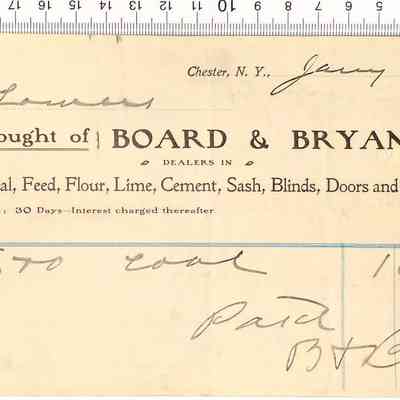 17 16 15 14 13 12 11 10 9 8 7 6 5 4 3 2
Chester, N. Y., Jany
ought of BOARD & BRYAN
DEALERS IN
al, Feed, Flour, Lime, Cement, Sash, Blinds, Doors and
: 30 Days—Interest charged thereafter
coal 1
Paid
B & B